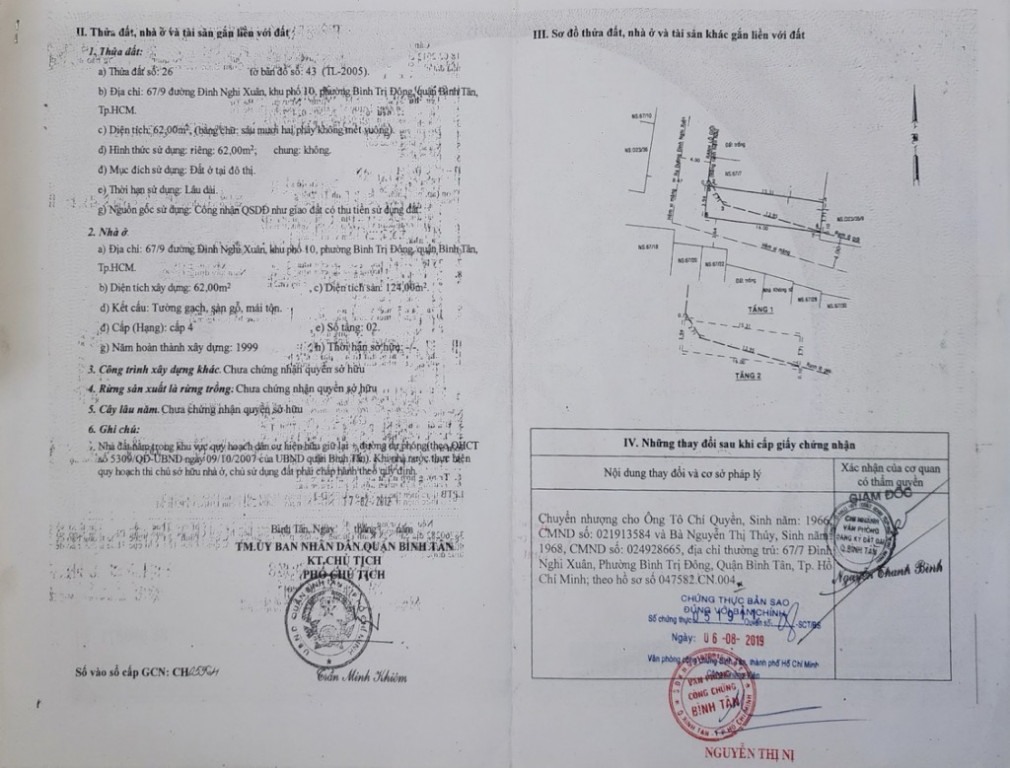 II. Thửa đất, nhà ở và tài sản gắn liền với đất
1. Thửa đất:
a) Thửa đất số: 26 tờ bản đồ số: 43 (TL-2005).
b) Địa chỉ: 67/9 đường Đình Nghi Xuân, khu phố 10, phường Bình Trị Đông, quận Bình Tân,
Tp.HCM.
c) Diện tích: 62,00m², (bằng chữ: sáu mươi hai phẩy không mét vuông).
d) Hình thức sử dụng: riêng: 62,00m²; chung: không.
đ) Mục đích sử dụng: Đất ở tại đô thị.
e) Thời hạn sử dụng: Lâu dài.
g) Nguồn gốc sử dụng: Công nhận QSDĐ như giao đất có thu tiền sử dụng đất.
2. Nhà ở.
a) Địa chỉ: 67/9 đường Đình Nghi Xuân, khu phố 10, phường Bình Trị Đông, quận Bình Tân,
Tp.HCM.
b) Diện tích xây dựng: 62,00m² , c) Diện tích sàn: 124,00m².
d) Kết cấu: Tường gạch, sàn gỗ, mái tôn.
đ) Cấp (Hạng): cấp 4 , e) Số tầng: 02.
g) Năm hoàn thành xây dựng: 1999 , h) Thời hạn sở hữu: -/-
3. Công trình xây dựng khác. Chưa chứng nhận quyền sở hữu
4. Rừng sản xuất là rừng trồng: Chưa chứng nhận quyền sở hữu
5. Cây lâu năm. Chưa chứng nhận quyền sở hữu
6. Ghi chú:
Nhà đất nằm trong khu vực quy hoạch dân cư hiện hữu giữ lại + đường dự phóng (theo QHCT
số 5309/QĐ-UBND ngày 09/10/2007 của UBND quận Bình Tân). Khi nhà nước thực hiện
quy hoạch thì chủ sở hữu nhà ở, chủ sử dụng đất phải chấp hành theo quy định.
17-02-2012
Bình Tân, Ngày tháng năm
TM.ỦY BAN NHÂN DÂN QUẬN BÌNH TÂN
KT.CHỦ TỊCH
PHÓ CHỦ TỊCH
Trần Minh Khiêm
Số vào sổ cấp GCN: CH
III. Sơ đồ thửa đất, nhà ở và tài sản khác gắn liền với đất
NS.67/10
Đất trống
NS.67/7
NS.67/18
NS.67/20
NS.67/22
Hẻm xi măng
Đất trống
NS.67/28
NS.67/30
TẦNG 1
TẦNG 2
IV. Những thay đổi sau khi cấp giấy chứng nhận
Nội dung thay đổi và cơ sở pháp lý
Xác nhận của cơ quan
có thẩm quyền
GIÁM ĐỐC
CHI NHÁNH
VĂN PHÒNG
ĐĂNG KÝ ĐẤT ĐAI
Q.BÌNH TÂN
Nguyễn Thanh Bình
Chuyển nhượng cho Ông Tô Chí Quyền, Sinh năm: 1966,
CMND số: 021913584 và Bà Nguyễn Thị Thủy, Sinh năm
1968, CMND số: 024928665, địa chỉ thường trú: 67/7 Đình
Nghi Xuân, Phường Bình Trị Đông, Quận Bình Tân, Tp. Hồ
Chí Minh; theo hồ sơ số 047582.CN.004
CHỨNG THỰC BẢN SAO
ĐÚNG VỚI BẢN CHÍNH
Số chứng thực Quyển số: -SCT/BS
Ngày: 06-08-2019
Văn phòng công chứng Bình Tân, thành phố Hồ Chí Minh
Công chứng viên
VĂN PHÒNG
CÔNG CHỨNG
BÌNH TÂN
NGUYỄN THỊ NỊ